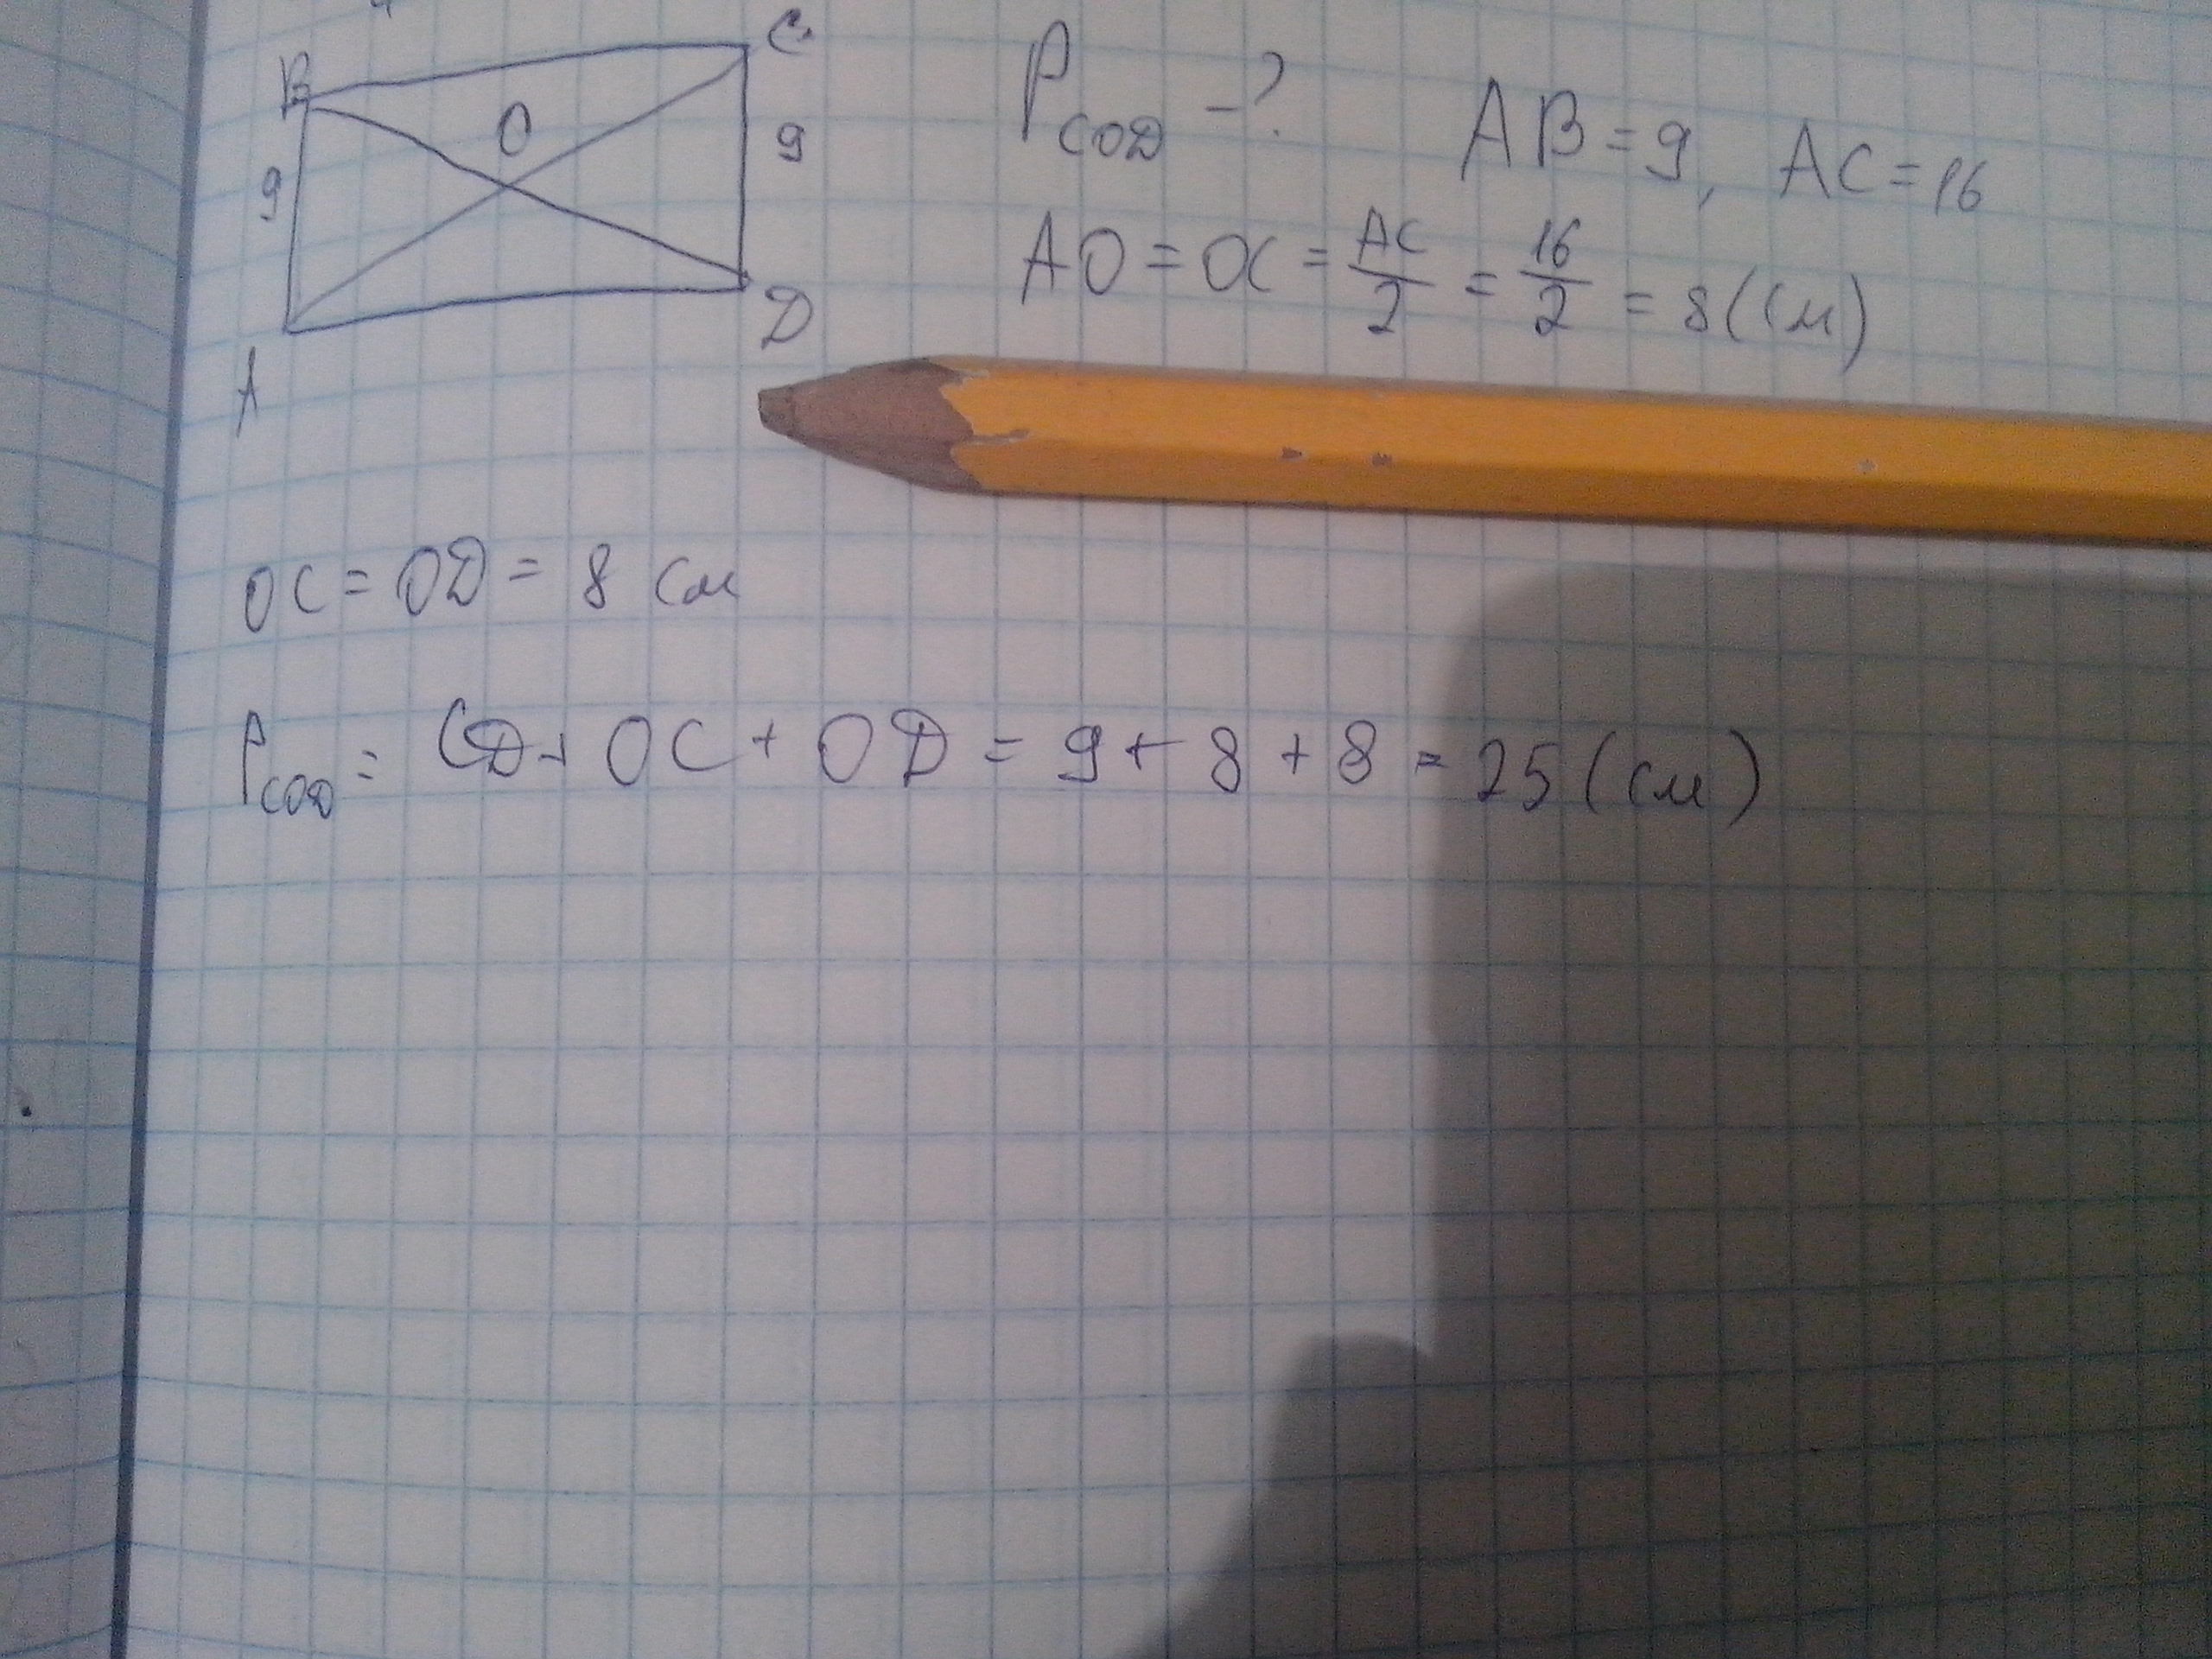 B
C
O
9
9
A
D
P_COD - ?  AB = 9, AC = 16
AO = OC = AC/2 = 16/2 = 8 (см)
OC = OD = 8 см
P_COD = CD + OC + OD = 9 + 8 + 8 = 25 (см)